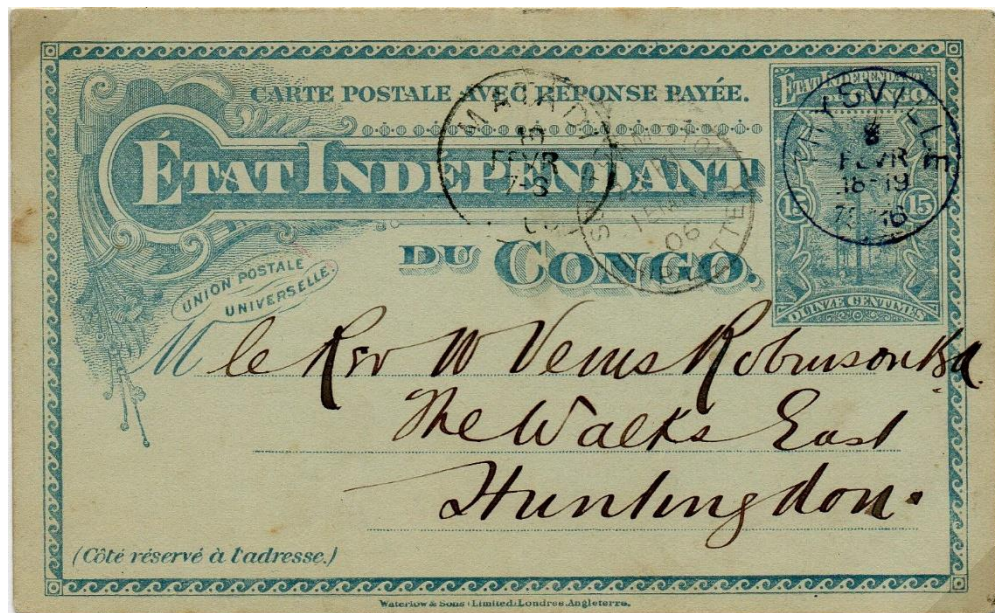 CARTE POSTALE AVEC RÉPONSE PAYÉE.
ÉTAT INDÉPENDANT
DU CONGO.
UNION POSTALE
UNIVERSELLE.
ETAT INDEPENDANT
DU CONGO.
15 15
QUINZE CENTIMES
MATADI
10
FEVR
7-8
THYSVILLE
8
FEVR
18-19
06
M le Rev W Venis Robinson Ba.
The Walks East
Huntingdon.
(Côté réservé à l'adresse.)
Waterlow & Sons Limited, Londres, Angleterre.